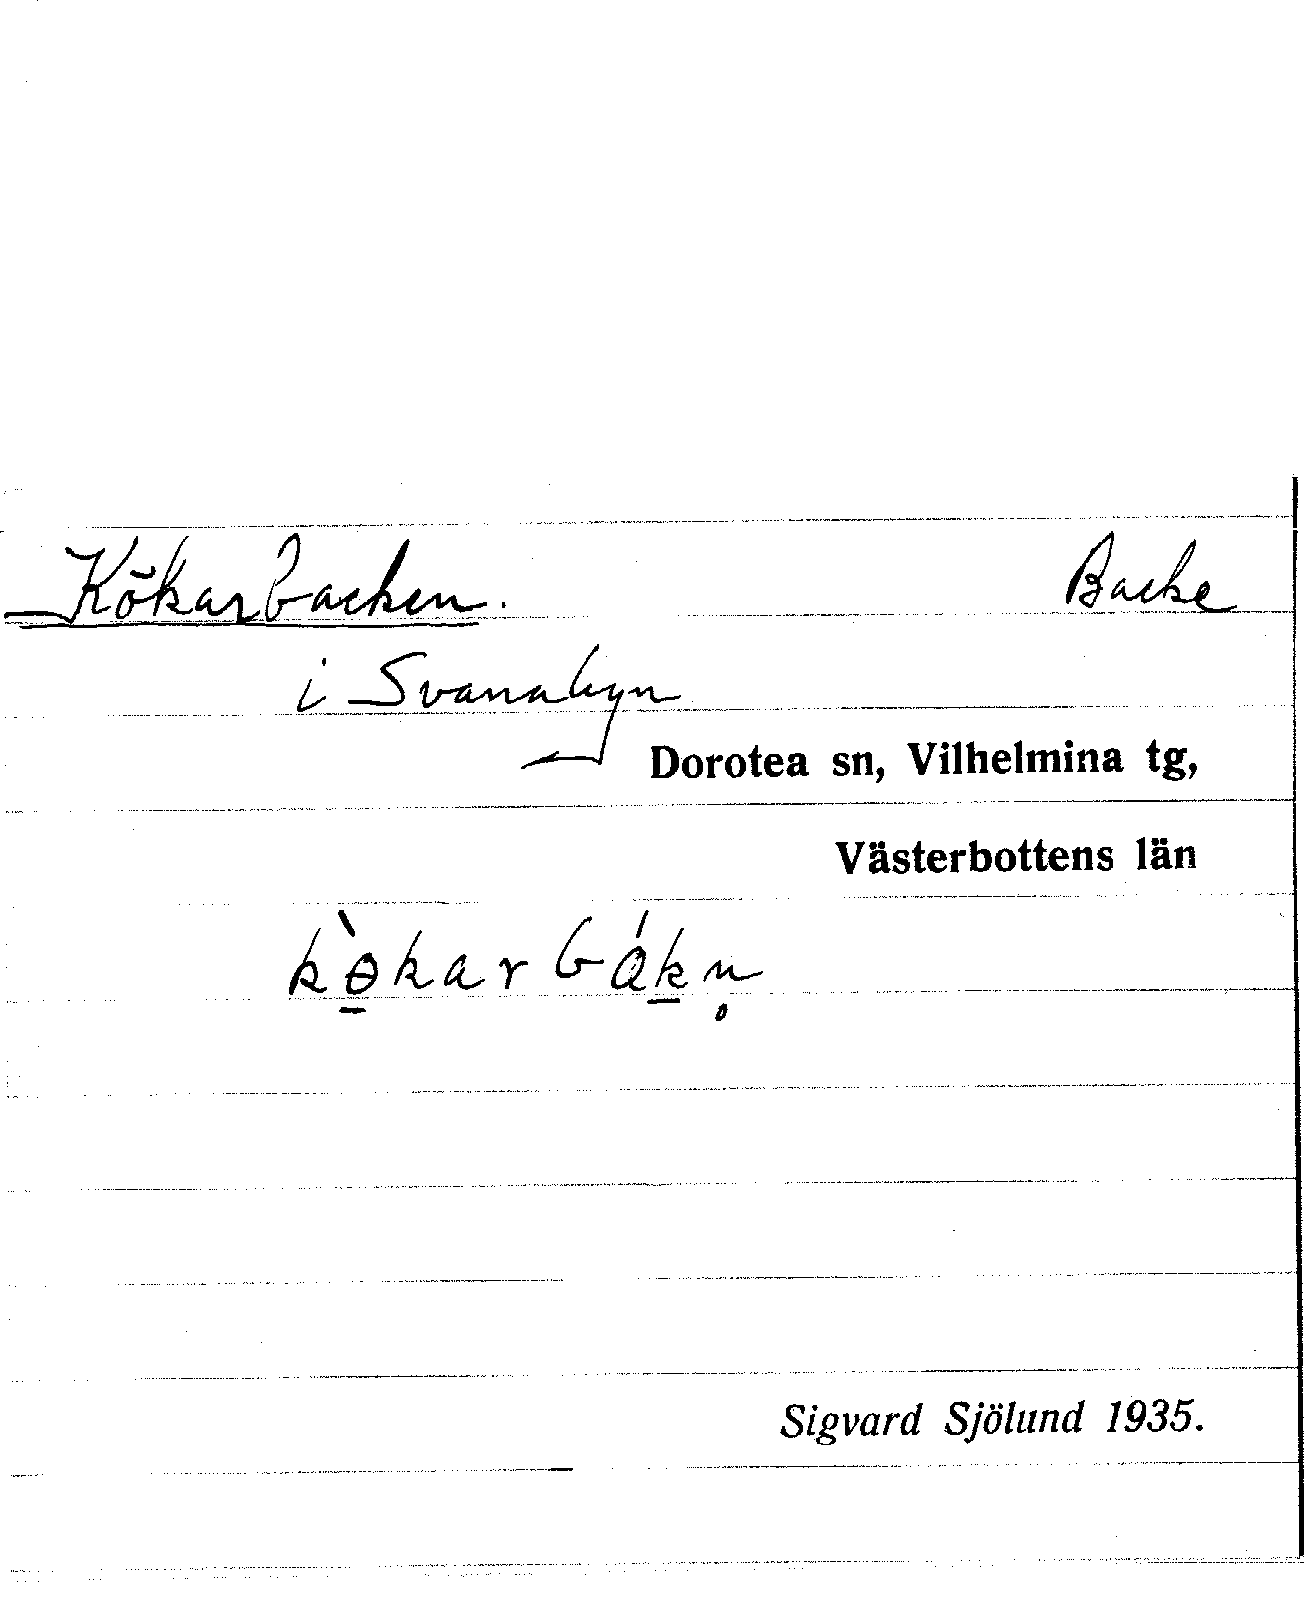 Kökarbacken. Backe
i Svanabyn
Dorotea sn, Vilhelmina tg,
Västerbottens län
kɵ̠̀karbák̠n̥
Sigvard Sjölund 1935.